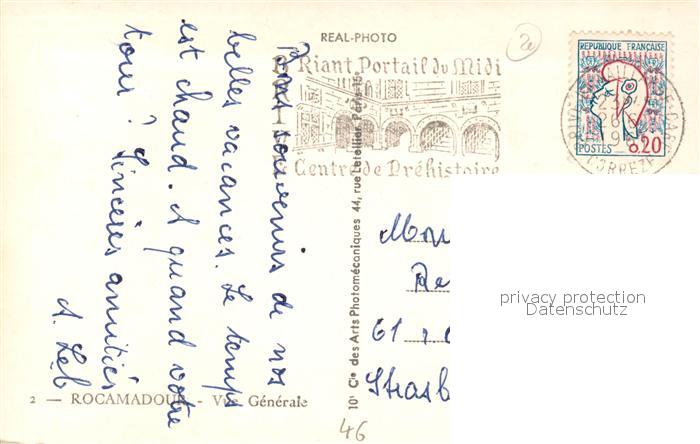 REAL-PHOTO
2e
Riant Portail du Midi
BRIVE
Centre de Préhistoire
REPUBLIQUE FRANÇAISE
POSTES 0,20
CORREZE
Bons souvenirs de nos
belles vacances. Le temps
est chaud. A quand votre
tour ? Sincères amitiés
A. Leb
10' Cie des Arts Photomécaniques 44, rue Letellier Paris-15e
Mon
Re
61 r
Strasb
privacy protection
Datenschutz
2 — ROCAMADOUR - Vue Générale
46